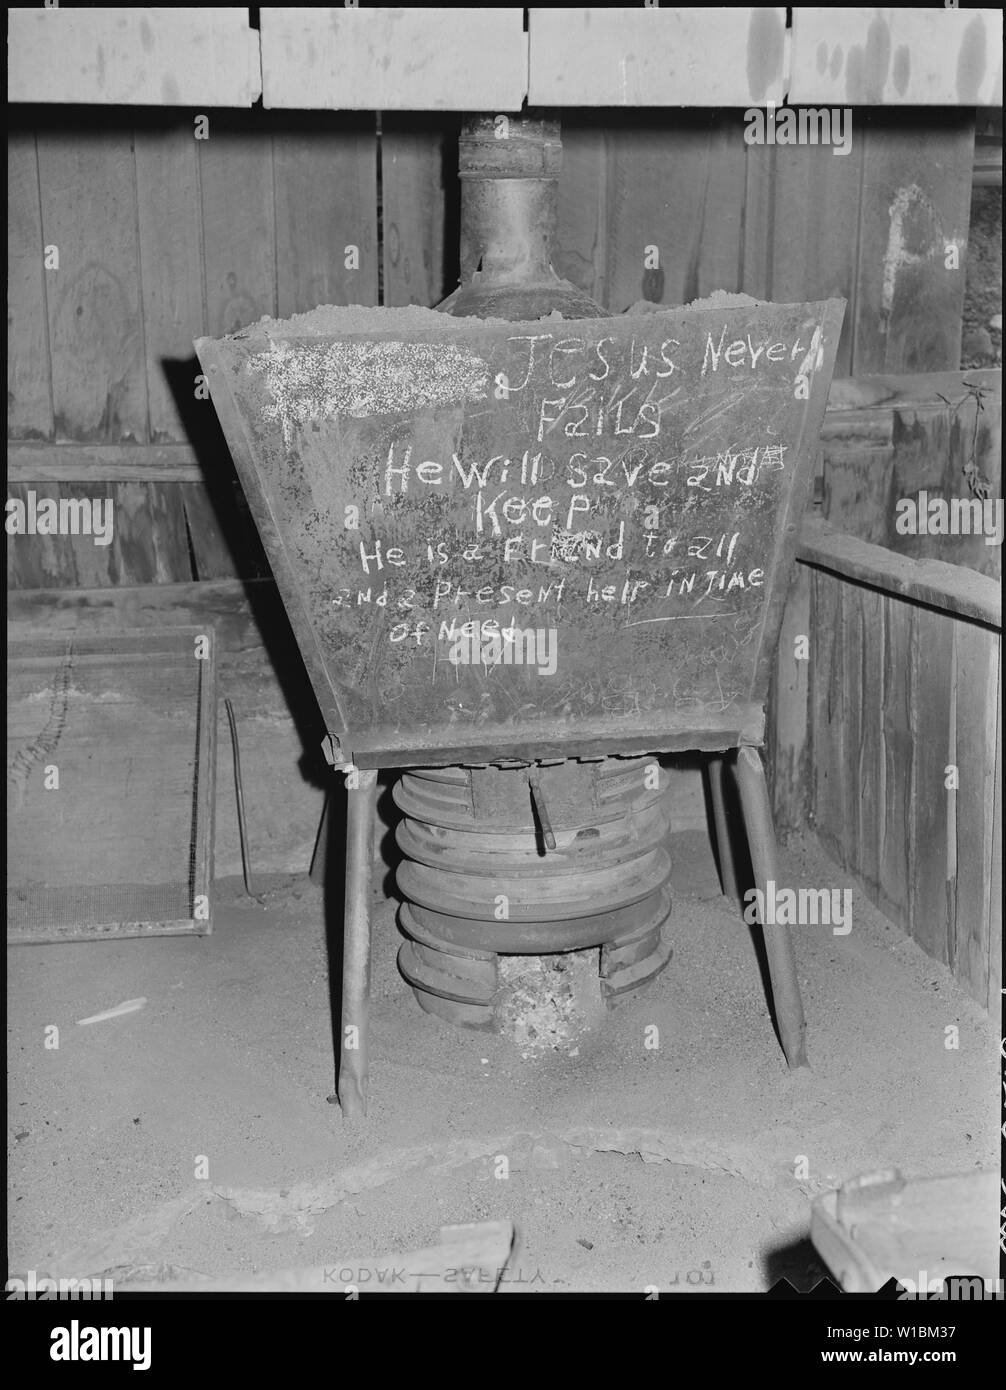 Jesus Never
Fails
He will save and
Keep
He is a Friend to all
and a Present help in Time
of Need
KODAK—SAFETY
alamy
alamy
Image ID: W1BM37
www.alamy.com